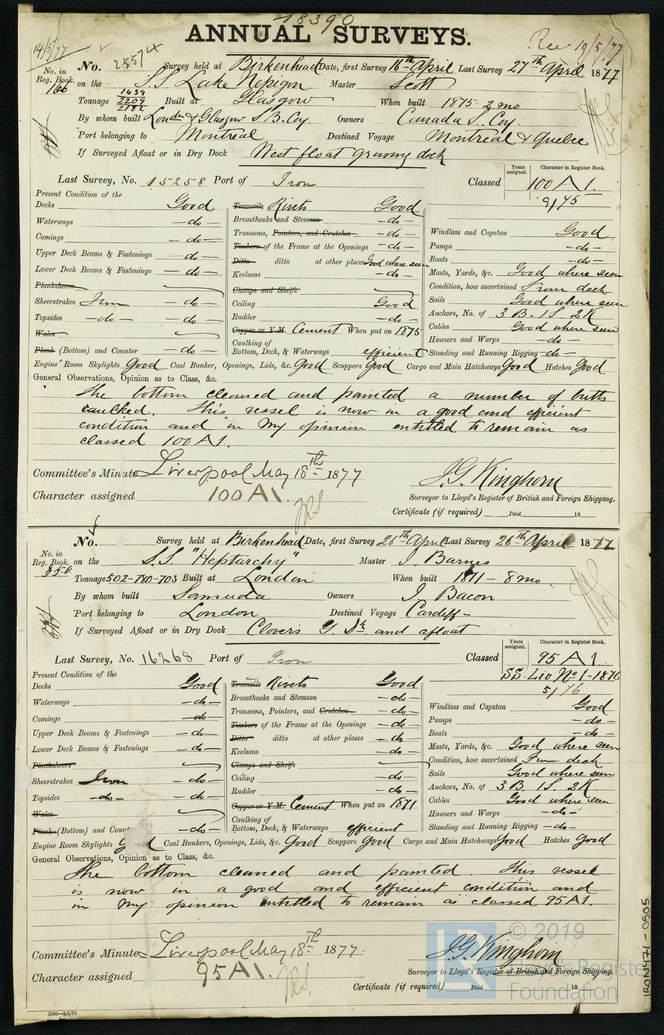 18390
ANNUAL SURVEYS.
14/5/77
Rec 19/5/77
No. 25574 Survey held at Birkenhead Date, first Survey 16th April Last Survey 27th April 1877
No. in Reg. Book. 166 on the S.S. Lake Nepigon Master Scott
Tonnage 1639 2209 2182 Built at Glasgow When built 1875-2mo
By whom built Londn & Glasgow S.B. Coy Owners Canada S. Coy.
Port belonging to Montreal Destined Voyage Montreal & Quebec
If Surveyed Afloat or in Dry Dock West float graving dock
Last Survey, No. 15258 Port of Iron Classed
Years assigned. Character in Register Book.
100 A1.
9/75
Present Condition of the
Decks Good
Waterways - do -
Comings - do -
Upper Deck Beams & Fastenings - do -
Lower Deck Beams & Fastenings - do -
Planksheers
Sheerstrakes Iron - do -
Topsides - do - - do -
Wales
Plank (Bottom) and Counter - do -
Treenails Rivets Good
Breasthooks and Stemson - do -
Transoms, Pointers, and Crutches - do -
Timbers of the Frame at the Openings - do -
Ditto ditto at other places Good where seen
Keelsons - do -
Clamps and Shelfs
Ceiling Good
Rudder - do -
Copper or Y.M. Cement When put on 1875
Caulking of
Bottom, Deck, & Waterways efficient
Windlass and Capstan Good
Pumps - do -
Boats - do -
Masts, Yards, &c. Good where seen
Condition, how ascertained From deck
Sails Good where seen
Anchors, No. of 3 B. 1S. 2K
Cables Good where seen
Hawsers and Warps - do -
Standing and Running Rigging - do -
Engine Room Skylights Good Coal Bunker, Openings, Lids, &c. Good Scuppers Good Cargo and Main Hatchways Good Hatches Good
General Observations, Opinion as to Class, &c.
The bottom cleaned and painted a number of butts
caulked. This vessel is now in a good and efficient
condition and in my opinion entitled to remain as
classed 100 A1.
Committee's Minute Liverpool May 18th 1877
Character assigned 100 A1.
J.G. Kinghorn
Surveyor to Lloyd's Register of British and Foreign Shipping.
Certificate (if required) Paid 18
No. Survey held at Birkenhead Date, first Survey 26th April Last Survey 26th April 1877
No. in Reg. Book. on the S.S. "Heptarchy" Master J Barnes
Tonnage 502-780-703 Built at London When built 1871-8mo.
By whom built Samuda Owners J. Bacon
Port belonging to London Destined Voyage Cardiff
If Surveyed Afloat or in Dry Dock Clovers G. Dk and afloat
Last Survey, No. 16268 Port of Iron Classed
Years assigned. Character in Register Book.
95 A1.
SS. Liv No 1-1876
5/76
Present Condition of the
Decks Good
Waterways - do -
Comings - do -
Upper Deck Beams & Fastenings - do -
Lower Deck Beams & Fastenings - do -
Planksheers
Sheerstrakes Iron - do -
Topsides - do - - do -
Wales
Plank (Bottom) and - do -
Treenails Rivets Good
Breasthooks and Stemson - do -
Transoms, Pointers, and Crutches - do -
Timbers of the Frame at the Openings - do -
Ditto ditto at other places - do -
Keelsons - do -
Clamps and Shelfs
Ceiling - do -
Rudder - do -
Copper or Y.M. Cement When put on 1871
Caulking of
Bottom, Deck, & Waterways efficient
Windlass and Capstan Good
Pumps - do -
Boats - do -
Masts, Yards, &c. Good where seen
Condition, how ascertained From deck
Sails Good where seen
Anchors, No. of 3 B. 1S. 2K
Cables Good where seen
Hawsers and Warps - do -
Standing and Running Rigging - do -
Engine Room Skylights Good Coal Bunkers, Openings, Lids, &c. Good Scuppers Good Cargo and Main Hatchways Good Hatches Good
General Observations, Opinion as to Class, &c.
The bottom cleaned and painted. This vessel
is now in a good and efficient condition and
in my opinion entitled to remain as classed 95 A1.
Committee's Minute Liverpool May 18th 1877.
Character assigned 95 A1.
J.G. Kinghorn
Surveyor to Lloyd's Register of British and Foreign Shipping.
Certificate (if required) Paid 18
© 2019
Lloyd's Register
Foundation
IRON471-0905